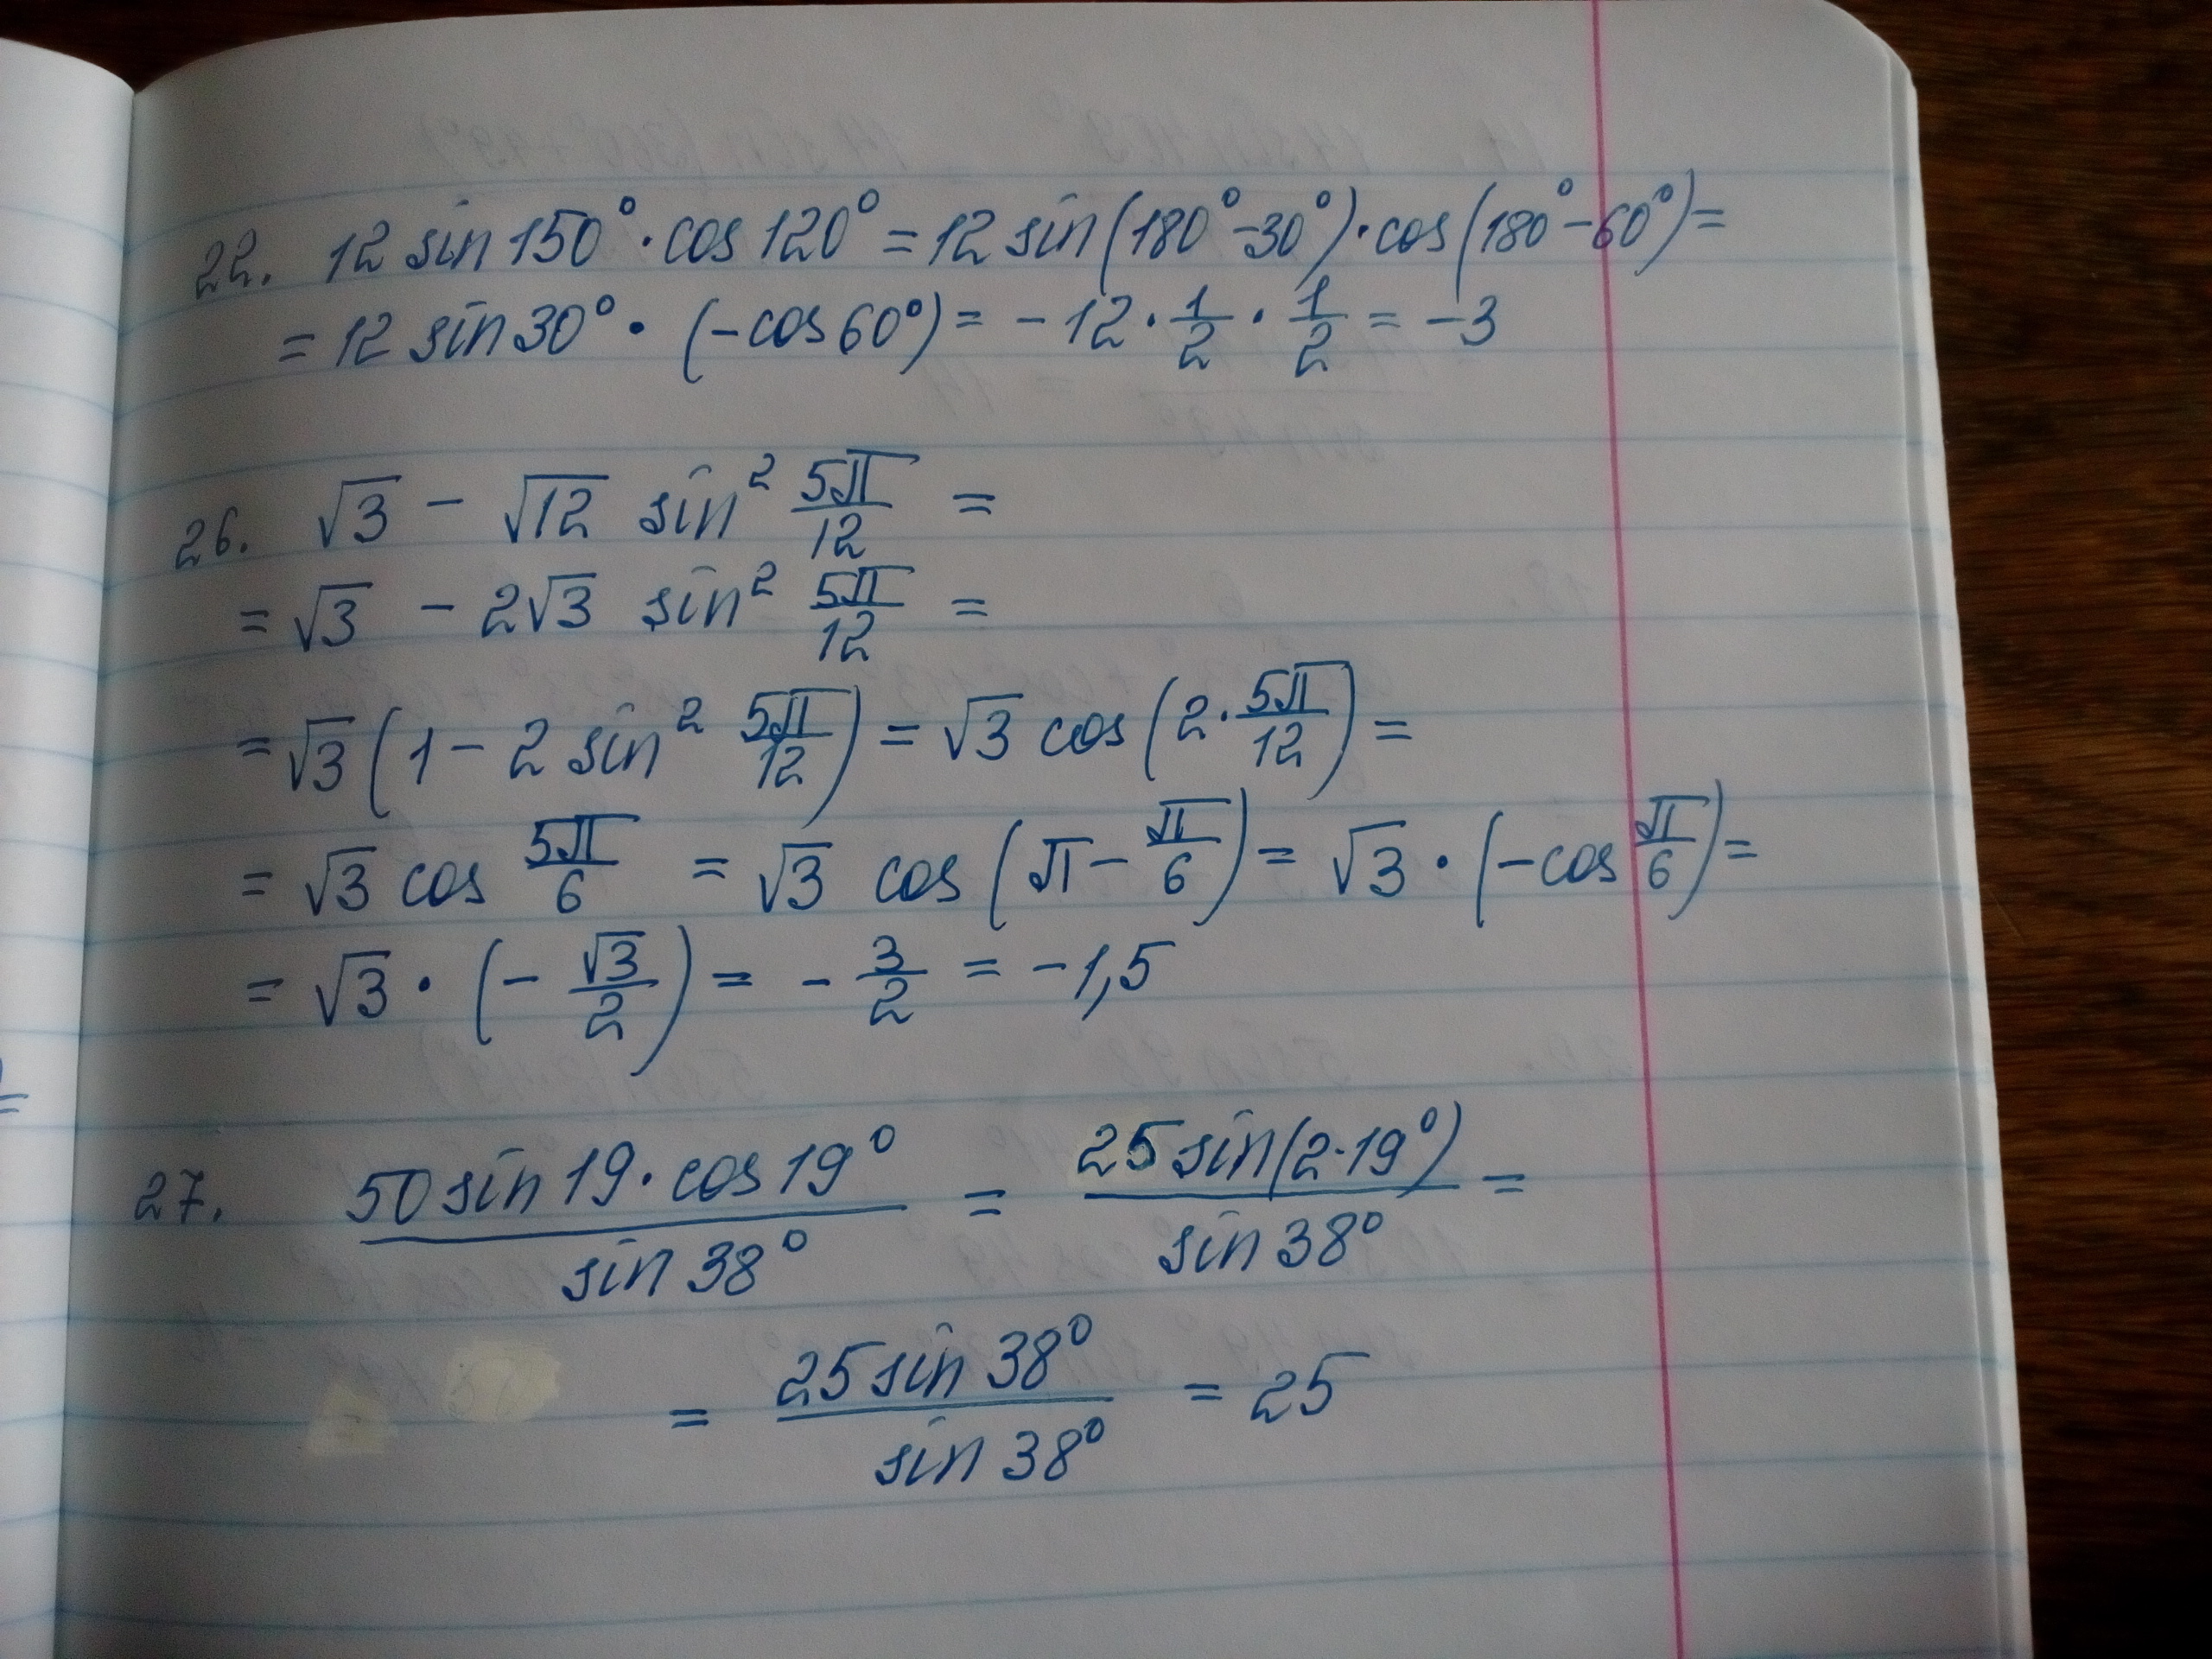 22. 12 sin 150° · cos 120° = 12 sin(180° - 30°) · cos(180° - 60°) =
= 12 sin 30° · (-cos 60°) = -12 · 1/2 · 1/2 = -3
26. √3 - √12 sin² 5π/12 =
= √3 - 2√3 sin² 5π/12 =
= √3 (1 - 2 sin² 5π/12) = √3 cos(2 · 5π/12) =
= √3 cos 5π/6 = √3 cos(π - π/6) = √3 · (-cos π/6) =
= √3 · (-√3/2) = -3/2 = -1,5
27. 50 sin 19 · cos 19° / sin 38° = 25 sin(2·19°) / sin 38° =
= 25 sin 38° / sin 38° = 25